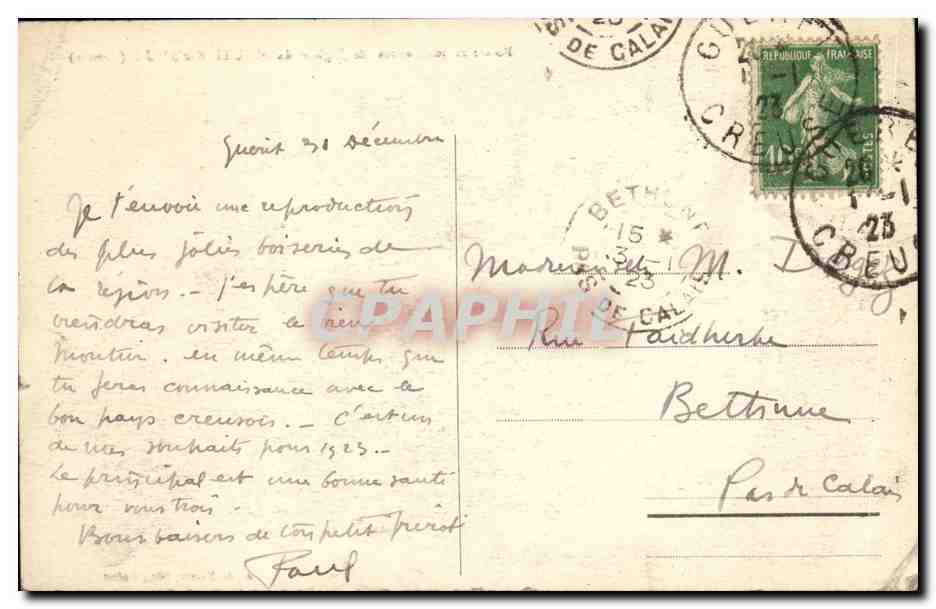 Guéret 31 Décembre
Je t'envoie une reproduction
des plus jolies boiseries de
la région. - J'espère que tu
viendras visiter le vieux
Moutier. en même temps que
tu feras connaissance avec le
bon pays creusois. - C'est un
de mes souhaits pour 1923. -
Le principal est une bonne santé
pour vous trois.
Bons baisers de ton petit frérot
Paul
Madame et M.
Rue Faidherbe
Bethune
Pas de Calais
REPUBLIQUE FRANÇAISE
10
POSTES
GUERET
23
CREUSE
GUERET
26
23
CREUSE
BETHUNE
15 *
3 - 1
23
PAS DE CALAIS
DE CALAIS
CPAPHIL